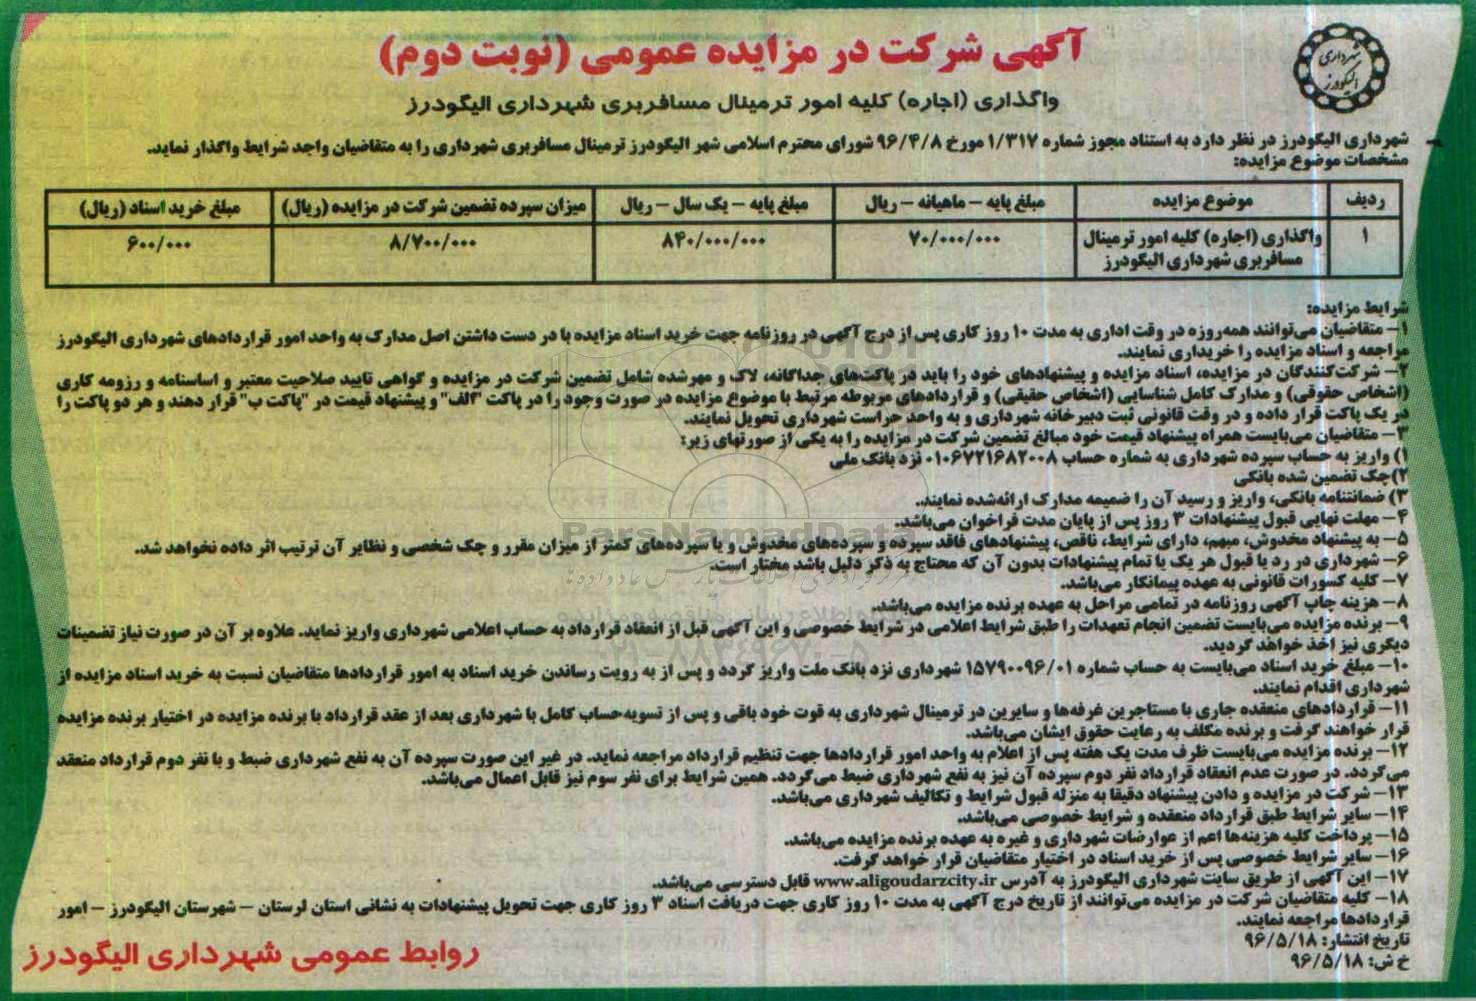 شهرداری
الیگودرز
آگهی شرکت در مزایده عمومی (نوبت دوم)
واگذاری (اجاره) کلیه امور ترمینال مسافربری شهرداری الیگودرز
شهرداری الیگودرز در نظر دارد به استناد مجوز شماره ۱/۳۱۷ مورخ ۹۶/۴/۸ شورای محترم اسلامی شهر الیگودرز ترمینال مسافربری شهرداری را به متقاضیان واجد شرایط واگذار نماید.
مشخصات موضوع مزایده:
ردیف موضوع مزایده مبلغ پایه - ماهیانه - ریال مبلغ پایه - یک سال - ریال میزان سپرده تضمین شرکت در مزایده (ریال) مبلغ خرید اسناد (ریال)
۱ واگذاری (اجاره) کلیه امور ترمینال ۷۰/۰۰۰/۰۰۰ ۸۴۰/۰۰۰/۰۰۰ ۸/۷۰۰/۰۰۰ ۶۰۰/۰۰۰
مسافربری شهرداری الیگودرز
شرایط مزایده:
۱- متقاضیان می‌توانند همه‌روزه در وقت اداری به مدت ۱۰ روز کاری پس از درج آگهی در روزنامه جهت خرید اسناد مزایده با در دست داشتن اصل مدارک به واحد امور قراردادهای شهرداری الیگودرز
مراجعه و اسناد مزایده را خریداری نمایند.
۲- شرکت‌کنندگان در مزایده، اسناد مزایده و پیشنهادهای خود را باید در پاکت‌های جداگانه، لاک و مهرشده شامل تضمین شرکت در مزایده و گواهی تایید صلاحیت معتبر و اساسنامه و رزومه کاری
(اشخاص حقوقی) و مدارک کامل شناسایی (اشخاص حقیقی) و قراردادهای مربوطه مرتبط با موضوع مزایده در صورت وجود را در پاکت "الف" و پیشنهاد قیمت در "پاکت ب" قرار دهند و هر دو پاکت را
در یک پاکت قرار داده و در وقت قانونی ثبت دبیرخانه شهرداری و به واحد حراست شهرداری تحویل نمایند.
۳- متقاضیان می‌بایست همراه پیشنهاد قیمت خود مبالغ تضمین شرکت در مزایده را به یکی از صورتهای زیر:
۱) واریز به حساب سپرده شهرداری به شماره حساب ۰۱۰۶۷۲۱۶۸۲۰۰۸ نزد بانک ملی
۲)چک تضمین شده بانکی
۳) ضمانتنامه بانکی، واریز و رسید آن را ضمیمه مدارک ارائه‌شده نمایند.
۴- مهلت نهایی قبول پیشنهادات ۳ روز پس از پایان مدت فراخوان می‌باشد.
۵- به پیشنهاد مخدوش، مبهم، دارای شرایط، ناقص، پیشنهادهای فاقد سپرده و سپرده‌های مخدوش و یا سپرده‌های کمتر از میزان مقرر و چک شخصی و نظایر آن ترتیب اثر داده نخواهد شد.
۶- شهرداری در رد یا قبول هر یک یا تمام پیشنهادات بدون آن که محتاج به ذکر دلیل باشد مختار است.
۷- کلیه کسورات قانونی به عهده پیمانکار می‌باشد.
۸- هزینه چاپ آگهی روزنامه در تمامی مراحل به عهده برنده مزایده می‌باشد.
۹- برنده مزایده می‌بایست تضمین انجام تعهدات را طبق شرایط اعلامی در شرایط خصوصی و این آگهی قبل از انعقاد قرارداد به حساب اعلامی شهرداری واریز نماید. علاوه بر آن در صورت نیاز تضمینات
دیگری نیز اخذ خواهد گردید.
۱۰- مبلغ خرید اسناد می‌بایست به حساب شماره ۱۵۷۹۰۰۹۶/۰۱ شهرداری نزد بانک ملت واریز گردد و پس از به رویت رساندن خرید اسناد به امور قراردادها متقاضیان نسبت به خرید اسناد مزایده از
شهرداری اقدام نمایند.
۱۱- قراردادهای منعقده جاری با مستاجرین غرفه‌ها و سایرین در ترمینال شهرداری به قوت خود باقی و پس از تسویه‌حساب کامل با شهرداری بعد از عقد قرارداد با برنده مزایده در اختیار برنده مزایده
قرار خواهند گرفت و برنده مکلف به رعایت حقوق ایشان می‌باشد.
۱۲- برنده مزایده می‌بایست ظرف مدت یک هفته پس از اعلام به واحد امور قراردادها جهت تنظیم قرارداد مراجعه نماید. در غیر این صورت سپرده آن به نفع شهرداری ضبط و با نفر دوم قرارداد منعقد
می‌گردد. در صورت عدم انعقاد قرارداد نفر دوم سپرده آن نیز به نفع شهرداری ضبط می‌گردد. همین شرایط برای نفر سوم نیز قابل اعمال می‌باشد.
۱۳- شرکت در مزایده و دادن پیشنهاد دقیقا به منزله قبول شرایط و تکالیف شهرداری می‌باشد.
۱۴- سایر شرایط طبق قرارداد منعقده و شرایط خصوصی می‌باشد.
۱۵- پرداخت کلیه هزینه‌ها اعم از عوارضات شهرداری و غیره به عهده برنده مزایده می‌باشد.
۱۶- سایر شرایط خصوصی پس از خرید اسناد در اختیار متقاضیان قرار خواهد گرفت.
۱۷- این آگهی از طریق سایت شهرداری الیگودرز به آدرس www.aligoudarzcity.ir قابل دسترسی می‌باشد.
۱۸- کلیه متقاضیان شرکت در مزایده می‌توانند از تاریخ درج آگهی به مدت ۱۰ روز کاری جهت دریافت اسناد ۳ روز کاری جهت تحویل پیشنهادات به نشانی استان لرستان - شهرستان الیگودرز - امور
قراردادها مراجعه نمایند.
تاریخ انتشار: ۹۶/۵/۱۸
خ ش: ۹۶/۵/۱۸
روابط عمومی شهرداری الیگودرز
ParsNamadData